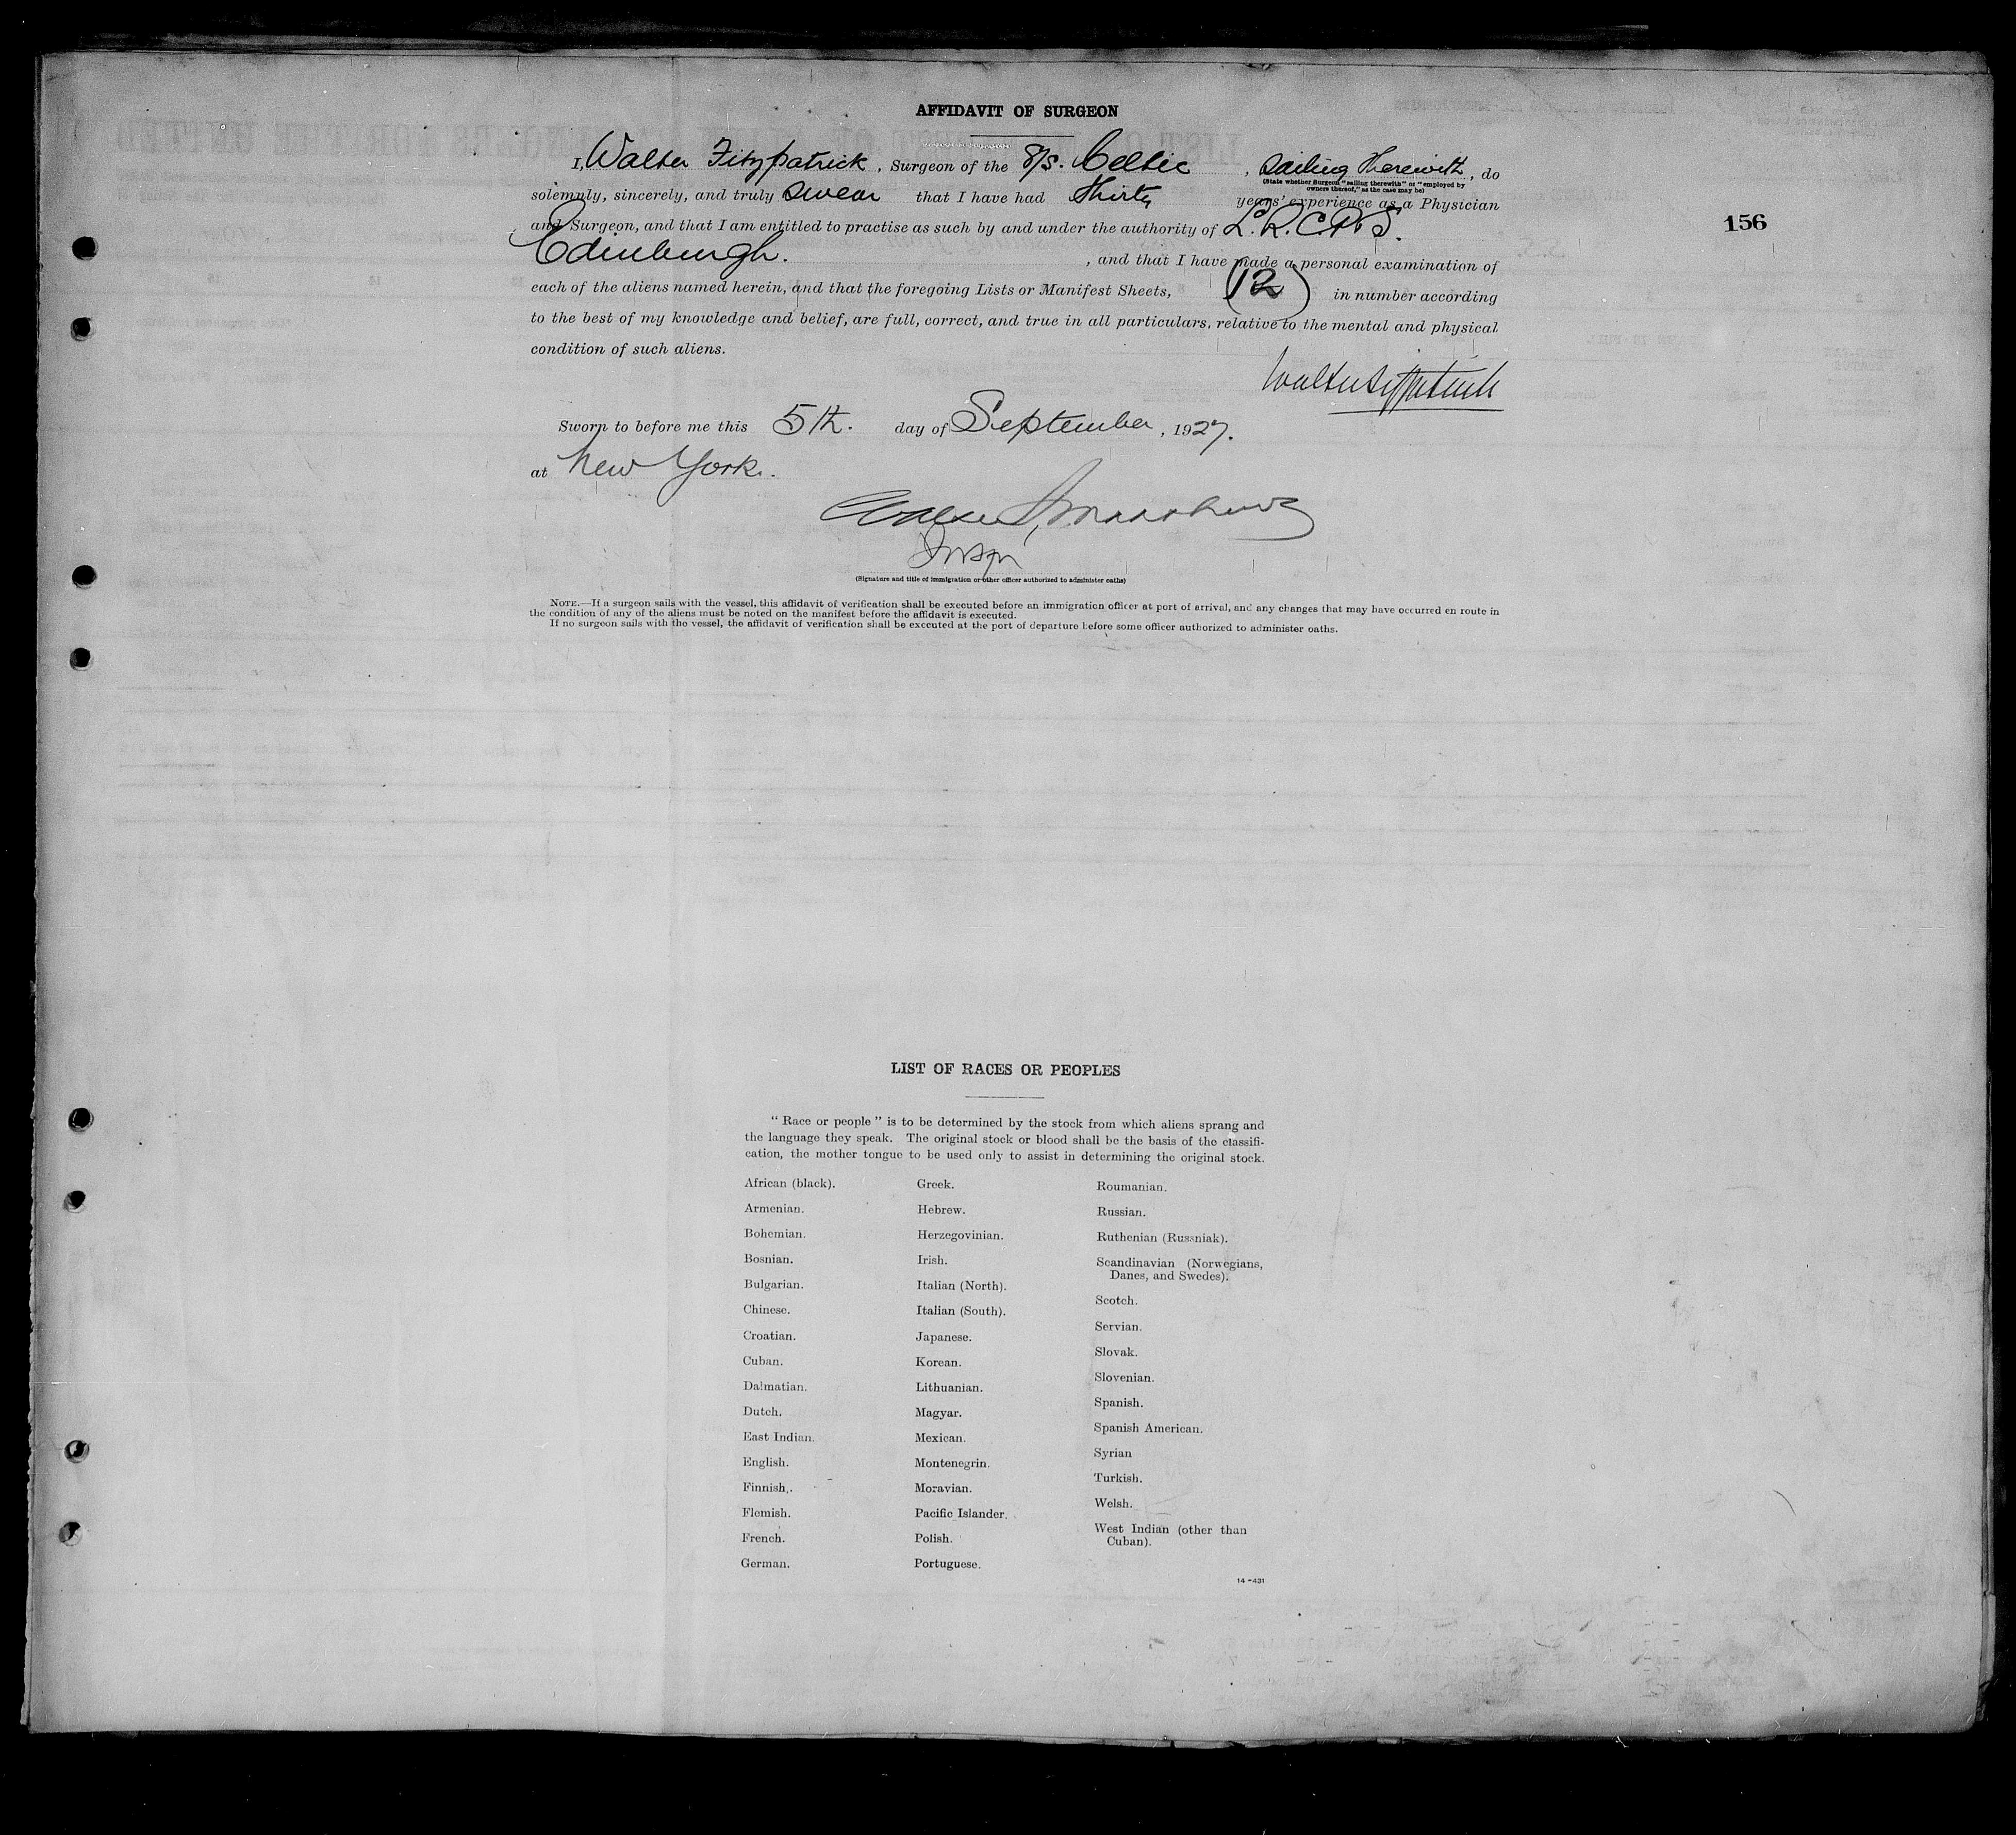 AFFIDAVIT OF SURGEON
I, Walter Fitzpatrick, Surgeon of the S/S. Celtic, sailing therewith, do
(State whether Surgeon "sailing therewith" or "employed by
owners thereof," as the case may be)
solemnly, sincerely, and truly swear that I have had Thirty years' experience as a Physician
and Surgeon, and that I am entitled to practise as such by and under the authority of L.R.C.P.S.
156
Edinburgh. , and that I have made a personal examination of
each of the aliens named herein, and that the foregoing Lists or Manifest Sheets, (12) in number according
to the best of my knowledge and belief, are full, correct, and true in all particulars, relative to the mental and physical
condition of such aliens.
Walter Fitzpatrick
Sworn to before me this 5th. day of September, 1927.
at New York.
Insp
(Signature and title of immigration or other officer authorized to administer oaths)
NOTE.—If a surgeon sails with the vessel, this affidavit of verification shall be executed before an immigration officer at port of arrival, and any changes that may have occurred en route in
the condition of any of the aliens must be noted on the manifest before the affidavit is executed.
If no surgeon sails with the vessel, the affidavit of verification shall be executed at the port of departure before some officer authorized to administer oaths.
LIST OF RACES OR PEOPLES
"Race or people" is to be determined by the stock from which aliens sprang and
the language they speak. The original stock or blood shall be the basis of the classifi-
cation, the mother tongue to be used only to assist in determining the original stock.
African (black).
Armenian.
Bohemian.
Bosnian.
Bulgarian.
Chinese.
Croatian.
Cuban.
Dalmatian.
Dutch.
East Indian.
English.
Finnish.
Flemish.
French.
German.
Greek.
Hebrew.
Herzegovinian.
Irish.
Italian (North).
Italian (South).
Japanese.
Korean.
Lithuanian.
Magyar.
Mexican.
Montenegrin.
Moravian.
Pacific Islander.
Polish.
Portuguese.
Roumanian.
Russian.
Ruthenian (Russniak).
Scandinavian (Norwegians,
Danes, and Swedes).
Scotch.
Servian.
Slovak.
Slovenian.
Spanish.
Spanish American.
Syrian
Turkish.
Welsh.
West Indian (other than
Cuban).
14-431